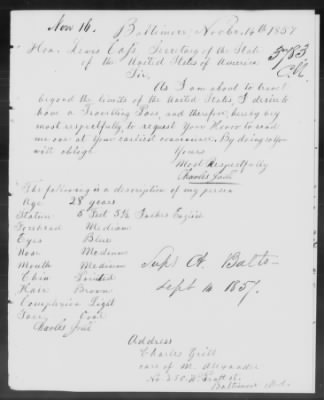 Nov 16. Baltimore Novbr. 14th 1857
Hon. Lewis Cass, Secretary of the State
of the United States of America
5783
Sir,
As I am about to travel
beyond the limits of the United States, I desire to
have a Travelling Pass, and therefore, hereby beg
most respectfully, to request Your Honor to send
me one at Your earliest convenience. By doing so You
will oblige Yours
Most Respectfully
Charles
The following is a description of my person
Age 28 years
Stature 5 Feet 5½ Inches English
Forehead Medium
Eyes Blue
Nose Medium
Mouth Medium
Chin Pointed
Hair Brown
Complexion Light
Face Oval
Charles
Sup. Ct. Balto
Sept 14 1857.
Address
Charles
care of M. Alexander
No 250 W. Pratt St.
Baltimore Md.